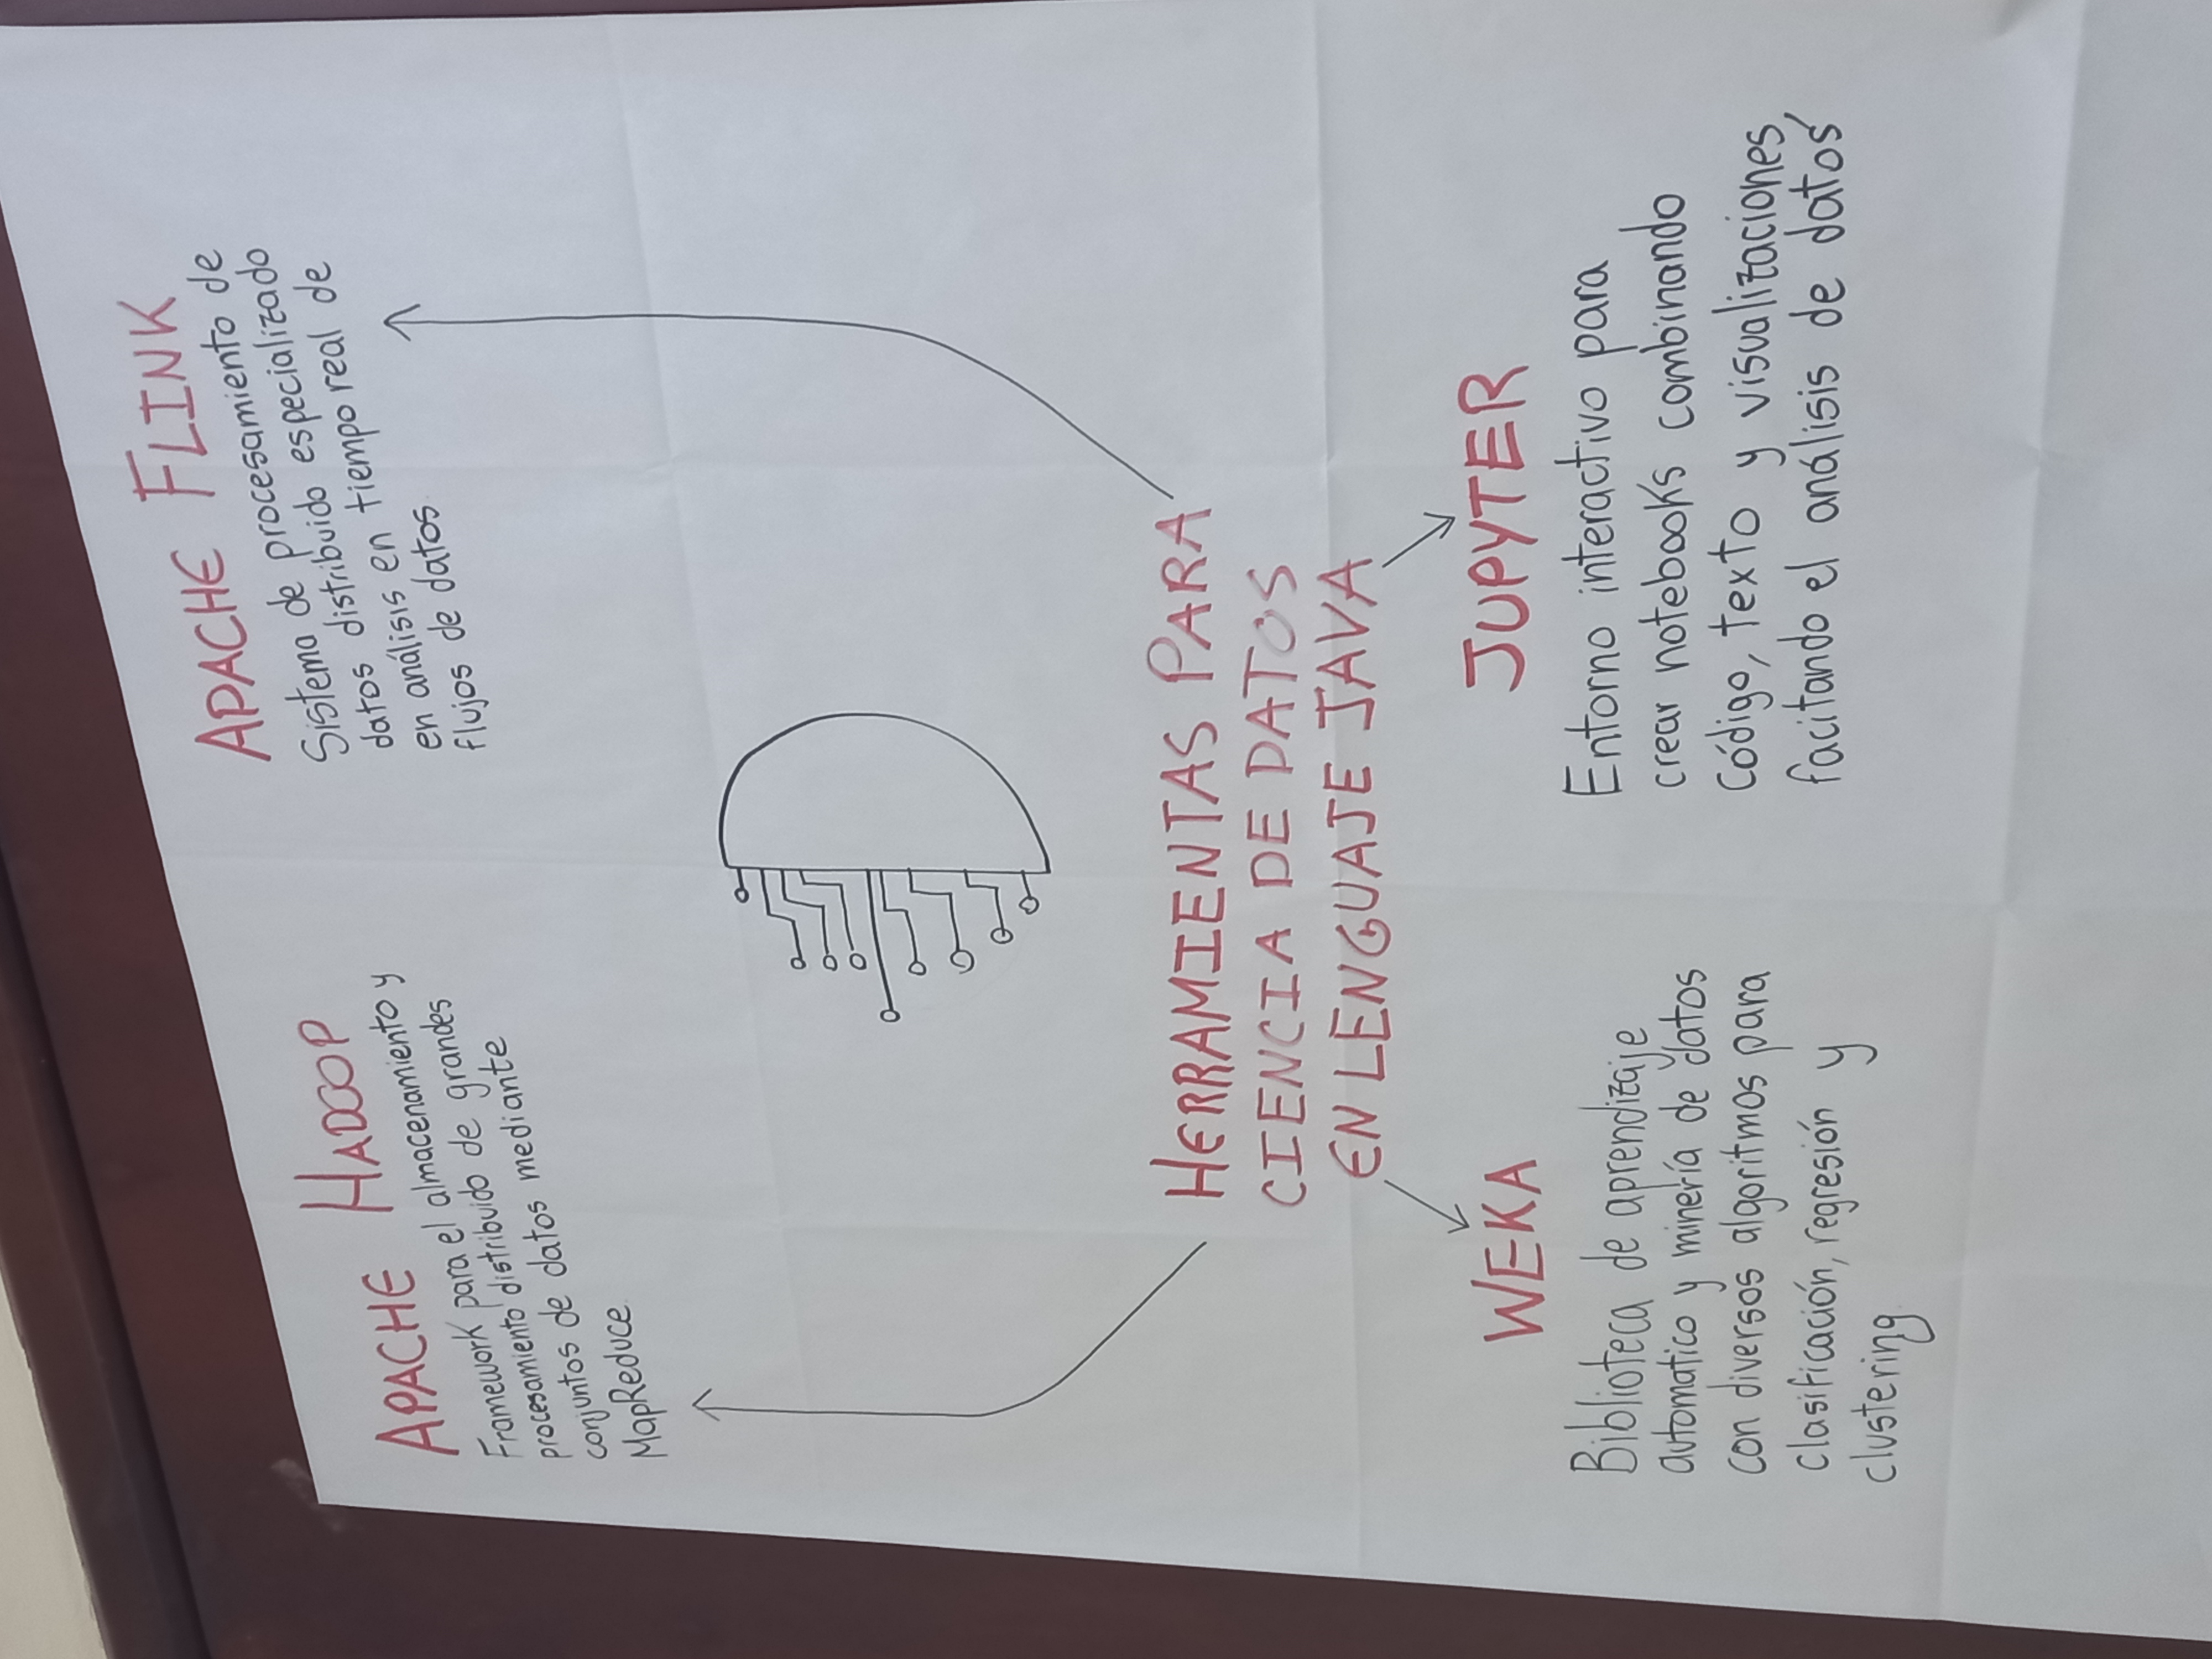 APACHE HADOOP
Framework para el almacenamiento y
procesamiento distribuido de grandes
conjuntos de datos mediante
MapReduce
APACHE FLINK
Sistema de procesamiento de
datos distribuido especializado
en análisis en tiempo real de
flujos de datos
HERRAMIENTAS PARA
CIENCIA DE DATOS
EN LENGUAJE JAVA
WEKA
Biblioteca de aprendizaje
automatico y minería de datos
con diversos algoritmos para
clasificación, regresión y
clustering
JUPYTER
Entorno interactivo para
crear notebooks combinando
código, texto y visualizaciones,
facitando el análisis de datos